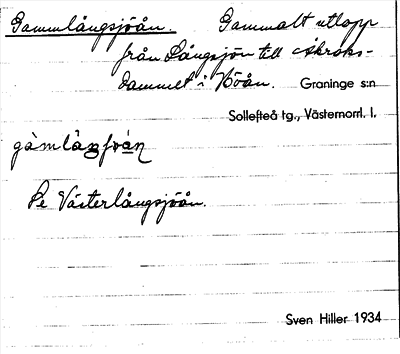 Gammlångsjöån. Gammalt utlopp
från Långsjön till
dammet i Höån. Graninge s:n
Sollefteå tg., Västernorrl. l.
Se Västerlångsjöån.
Sven Hiller 1934